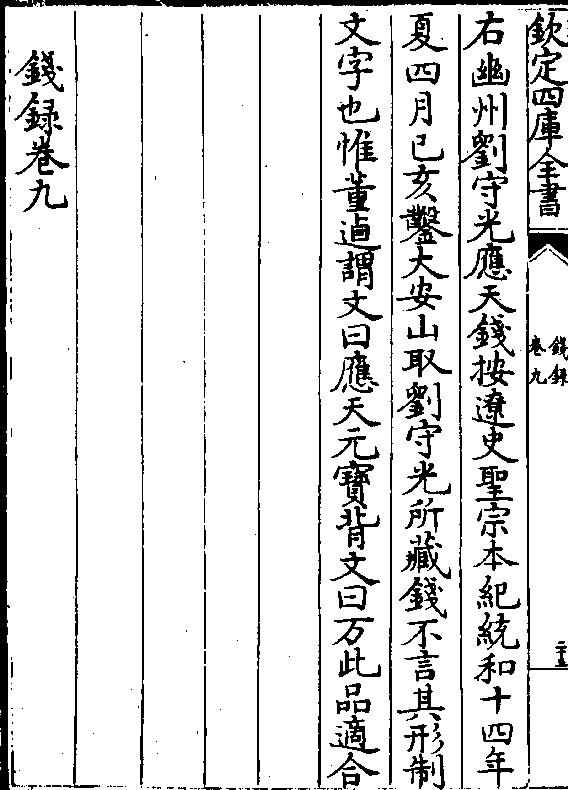 欽定四庫全書
錢録
卷九
二十五
右幽州劉守光應天錢按遼史聖宗本紀統和十四年
夏四月己亥鑿大安山取劉守光所藏錢不言其形制
文字也惟董逌謂文曰應天元寶背文曰万此品適合
錢録卷九